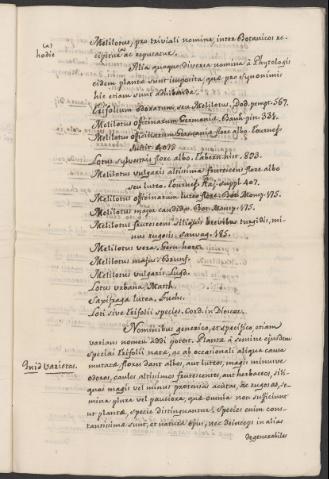 (a)
hodie
Melilotus, pro triviali nomine, inter Botanicos re-
cipitur (a) ac reputatur.
Alia quoque diversa nomina à Phytologis
eidem planta sunt imposita, quae pro synonimis
hic etiam exhibenda.
Trifolium odoratum, seu Melilotus, Dod. pempt. 567.
Melilotus officinarum Germaniae, Bauh. pin. 331.
Melilotus officinarum Germaniae flore albo. Tournef.
Instit. 407.
Lotus sylvestris flore albo. Tabern. hist. 893.
Melilotus vulgaris altissima frutescens flore albo
seu luteo. Tournef. Raj. suppl. 407.
Melilotus officinarum lutea flore. Bot. Monsp. 175.
Melilotus major candida. Bot. Monsp. 175.
Melilotus frutescens siliquis brevibus turgidis, mi-
nus rugosis. Sauvag. 185.
Melilotus vera.
Melilotus major. Brunf.
Melilotus vulgaris. Lugd.
Lotus urbana. Matth.
Saxifraga lutea. Fuchs.
Loti sive Trifolii species. Cord. in Dioscor.
Nominibus generico, et specifico etiam
varium nomen addi potest. Planta à semine ejusdem
speciei Trifolii natae, ac ab occasionali aliqua causa
mutatae, flores dant albos, aut luteos, magis minusve
odoros, caules altissimos frutescentes, aut herbaceos, sili-
quas magis vel minus protensas acutas, ac rugosas, se-
mina plura vel pauciora, quae omnia non sufficiunt
ut plantae, specie distinguantur; Species enim cons-
tantissimae sunt, et naturae opus, nec deinceps in alias
degenerabiles
Imo varietas.